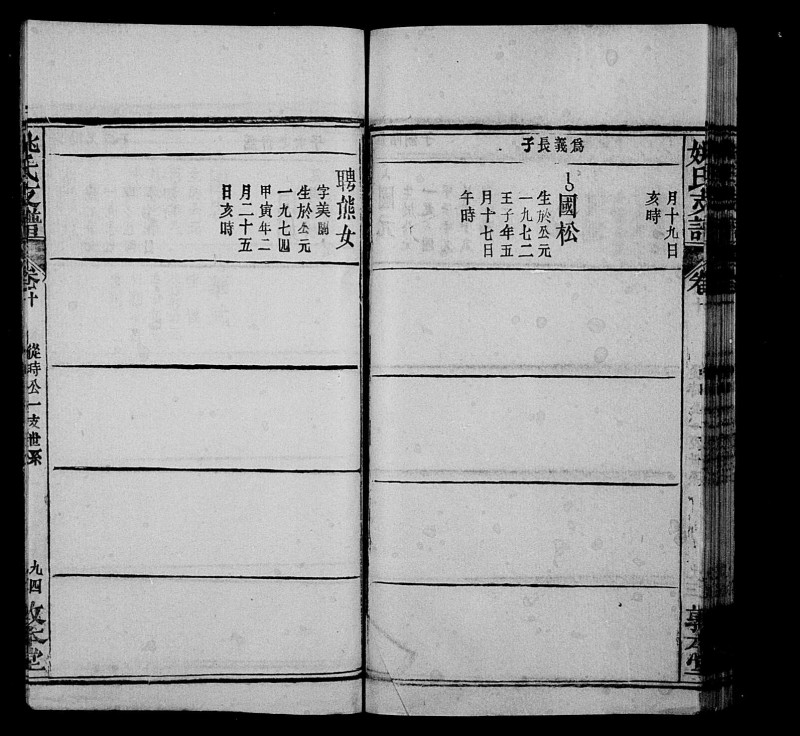 月十九日
亥時
爲義長子
國松
生於公元
一九七二
壬子年五
月十七日
午時
聘熊女
字美圓
生於公元
一九七四
甲寅年二
月二十五
日亥時
姚氏支譜
卷十
從時公一支世系
九四
敦本堂